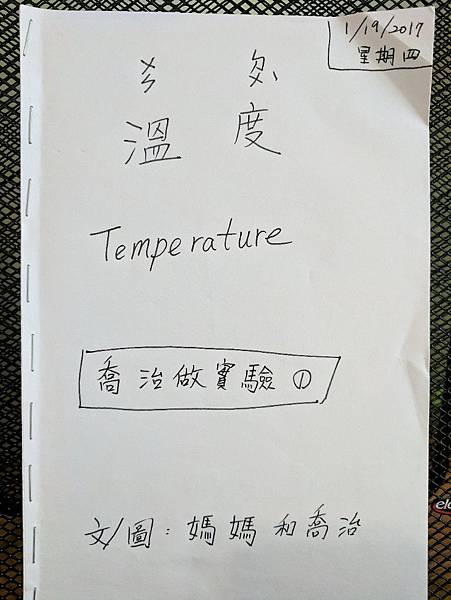 1/19/2017
星期四
ㄨㄣ ㄉㄨˋ
溫度
Temperature
喬治做實驗①
文/圖：媽媽和喬治